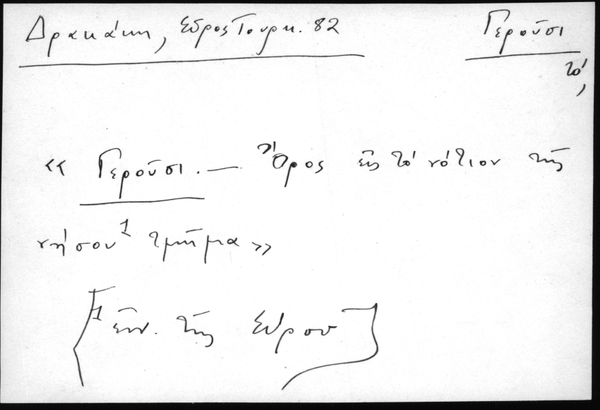 Δρακάκη, Σῦρος Τουρκ. 82
Γεροῦσι
τό,
« Γεροῦσι. — Ὄρος εἰς τὸ νότιον τῆς
νήσου¹ τμῆμα»
[¹ ἐνν. τῆς Σύρου]